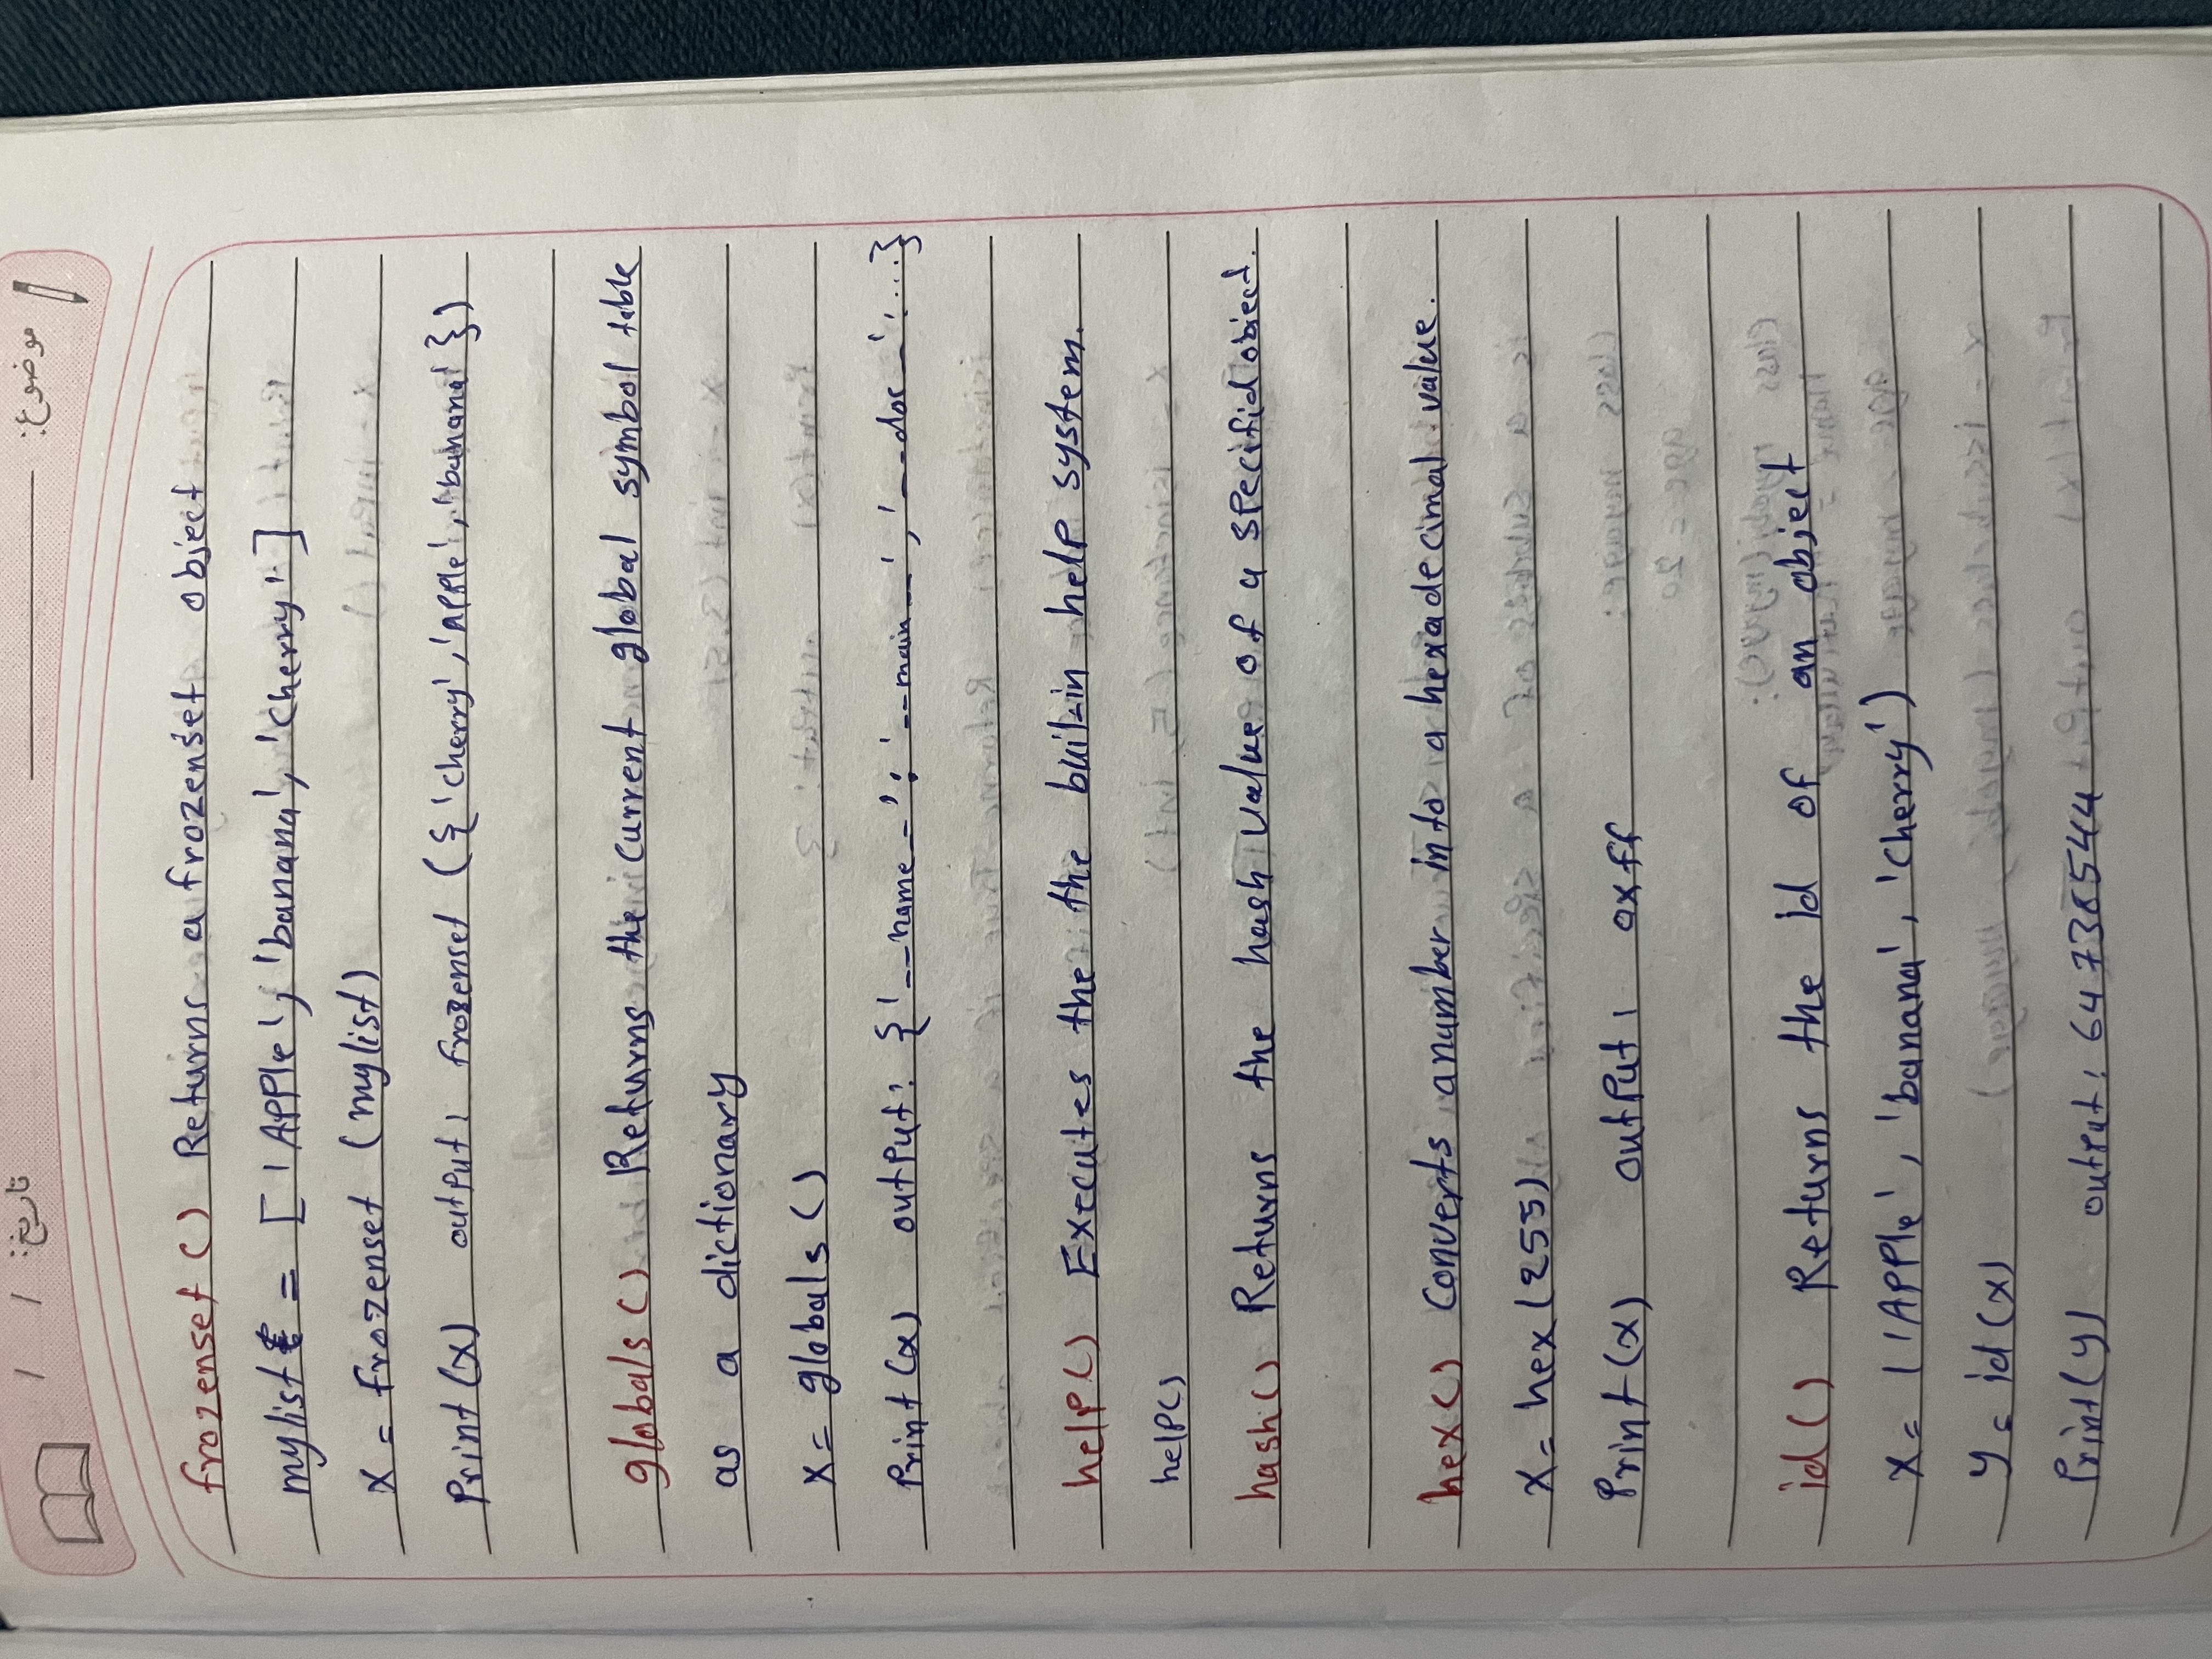 موضوع: تاریخ: / /
frozenset() Returns a frozenset object
mylist = ['Apple', 'banana', 'Cherry']
x = frozenset (mylist)
Print(x) output: frozenset ({'cherry', 'apple', 'banana'})
globals() Returns the current global symbol table
as a dictionary
x = globals()
Print(x) output: {'__name_': '__main__', '__doc__': ...}
help() Executes the the buil-in help system.
help()
hash() Returns the hash value of a specifid object.
hex() Converts a number into a hexadecimal value.
x = hex(255)
Print(x) output: 0xff
id() Returns the id of an object
x = ('Apple', 'banana', 'Cherry')
y = id(x)
Print(y) output: 64738544